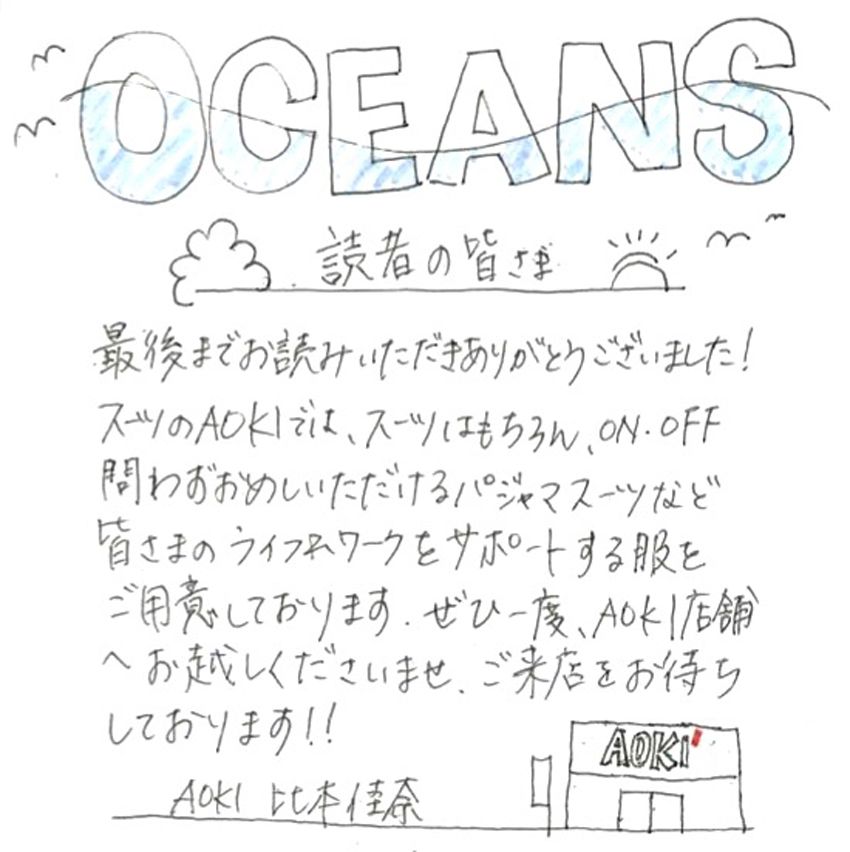 OCEANS
読者の皆さま
最後までお読みいただきありがとうございました!
スーツのAOKIでは、スーツはもちろん、ON・OFF
問わずおめしいただけるパジャマスーツなど
皆さまのライフ&ワークをサポートする服を
ご用意しております。ぜひ一度、AOKI店舗
へお越しくださいませ。ご来店をお待ち
しております!!
AOKI
AOKI 比本佳奈